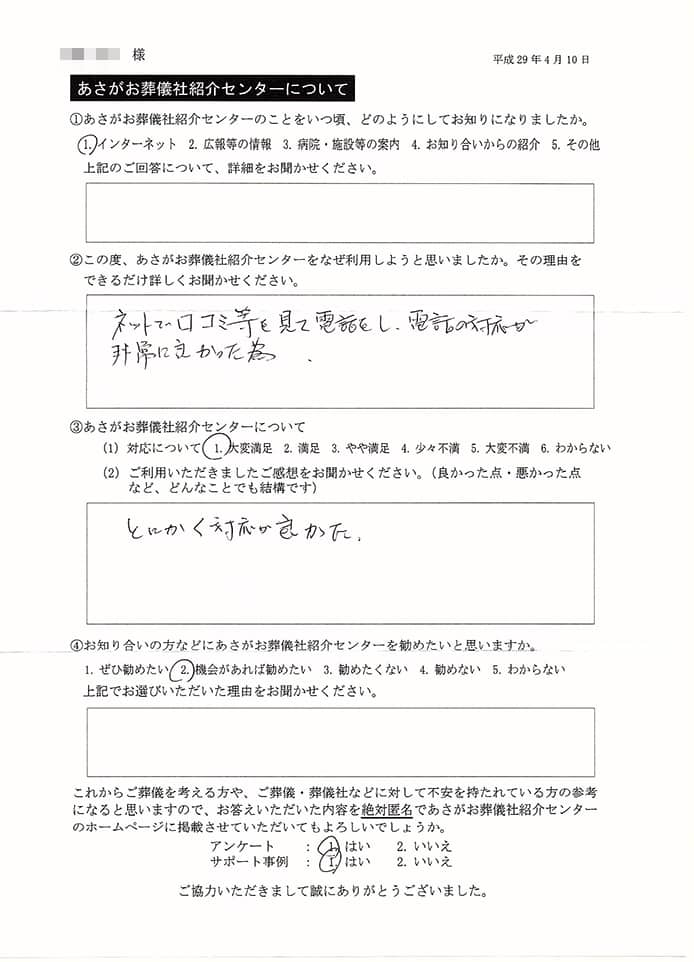 様
平成29年4月10日
あさがお葬儀社紹介センターについて
①あさがお葬儀社紹介センターのことをいつ頃、どのようにしてお知りになりましたか。
1. インターネット 2. 広報等の情報 3. 病院・施設等の案内 4. お知り合いからの紹介 5. その他
上記のご回答について、詳細をお聞かせください。
②この度、あさがお葬儀社紹介センターをなぜ利用しようと思いましたか。その理由を
できるだけ詳しくお聞かせください。
ネットで口コミ等を見て電話をし、電話の対応が
非常に良かった為.
③あさがお葬儀社紹介センターについて
(1) 対応について 1. 大変満足 2. 満足 3. やや満足 4. 少々不満 5. 大変不満 6. わからない
(2) ご利用いただきましたご感想をお聞かせください。(良かった点・悪かった点
など、どんなことでも結構です)
とにかく対応が良かった.
④お知り合いの方などにあさがお葬儀社紹介センターを勧めたいと思いますか。
1. ぜひ勧めたい 2. 機会があれば勧めたい 3. 勧めたくない 4. 勧めない 5. わからない
上記でお選びいただいた理由をお聞かせください。
これからご葬儀を考える方や、ご葬儀・葬儀社などに対して不安を持たれている方の参考
になると思いますので、お答えいただいた内容を絶対匿名であさがお葬儀社紹介センター
のホームページに掲載させていただいてもよろしいでしょうか。
アンケート : 1. はい 2. いいえ
サポート事例 : 1. はい 2. いいえ
ご協力いただきまして誠にありがとうございました。